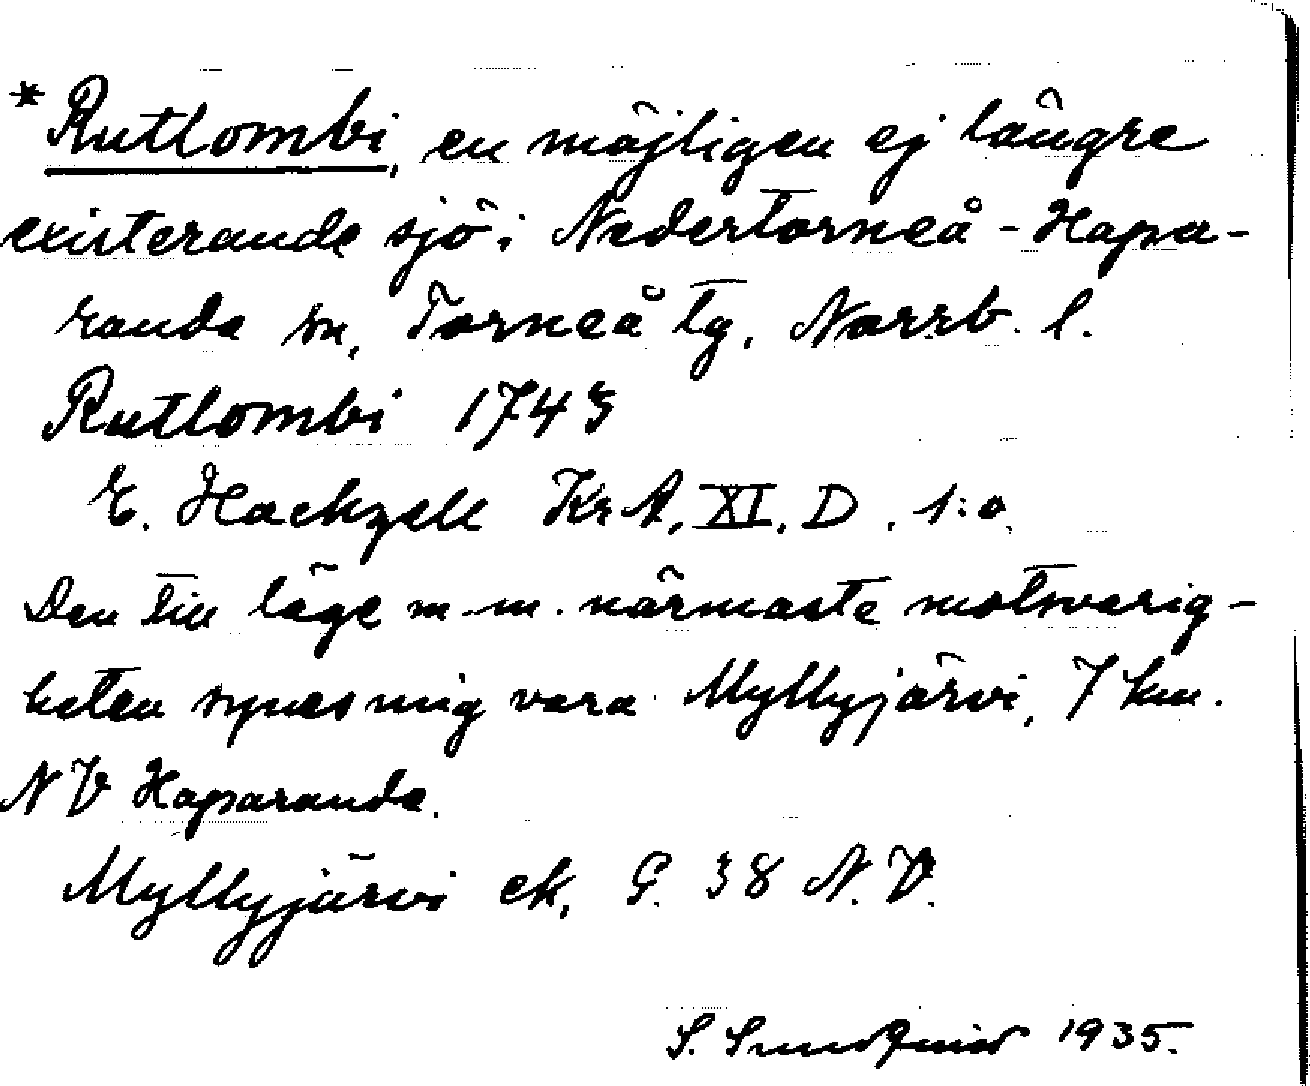 *Rutlombi, en möjligen ej längre
existerande sjö i Nedertorneå - Hapa-
randa sn, Torneå tg, Norrb. l.
Rutlombi 1743
E. Hackzell KrA, XI. D. 1:a.
Den till läge m.m. närmaste motsvarig-
heten synes mig vara Myllyjärvi, 7 km.
NV Haparanda.
Myllyjärvi ek, G. 38 N.V.
S. Sundqvist 1935.